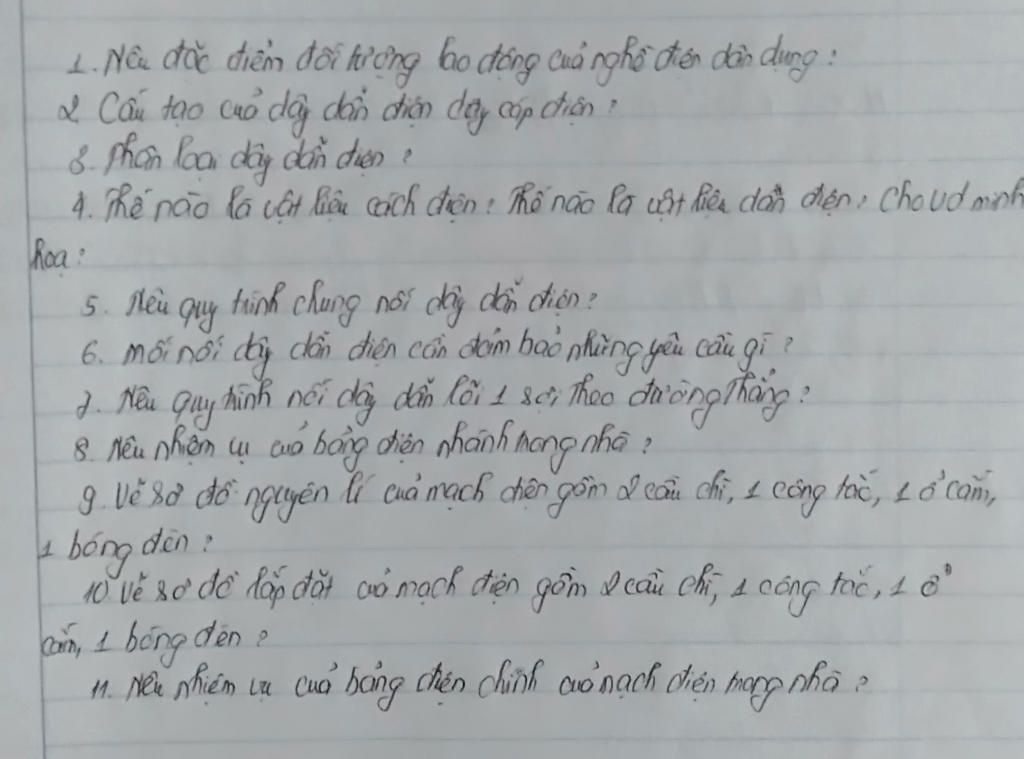 1. Nêu đặc điểm đối tượng lao động của nghề điện dân dụng?
2 Cấu tạo của dây dẫn điện dây cáp điện?
3. Phân loại dây dẫn điện?
4. Thế nào là vật liệu cách điện? Thế nào là vật liệu dẫn điện? Cho vd minh
hoạ?
5. Nêu quy trình chung nối dây dẫn điện?
6. mối nối dây dẫn điện cần đảm bảo những yêu cầu gì?
7. Nêu quy trình nối dây dẫn lõi 1 sợi theo đường thẳng?
8. Nêu nhiệm vụ của bảng điện nhánh trong nhà?
9. Vẽ sơ đồ nguyên lí của mạch điện gồm 2 cầu chì, 1 công tắc, 1 ổ cắm,
1 bóng đèn?
10 Vẽ sơ đồ lắp đặt của mạch điện gồm 2 cầu chì, 1 công tắc, 1 ổ
cắm, 1 bóng đèn?
11. Nêu nhiệm vụ của bảng điện chính của mạch điện trong nhà?